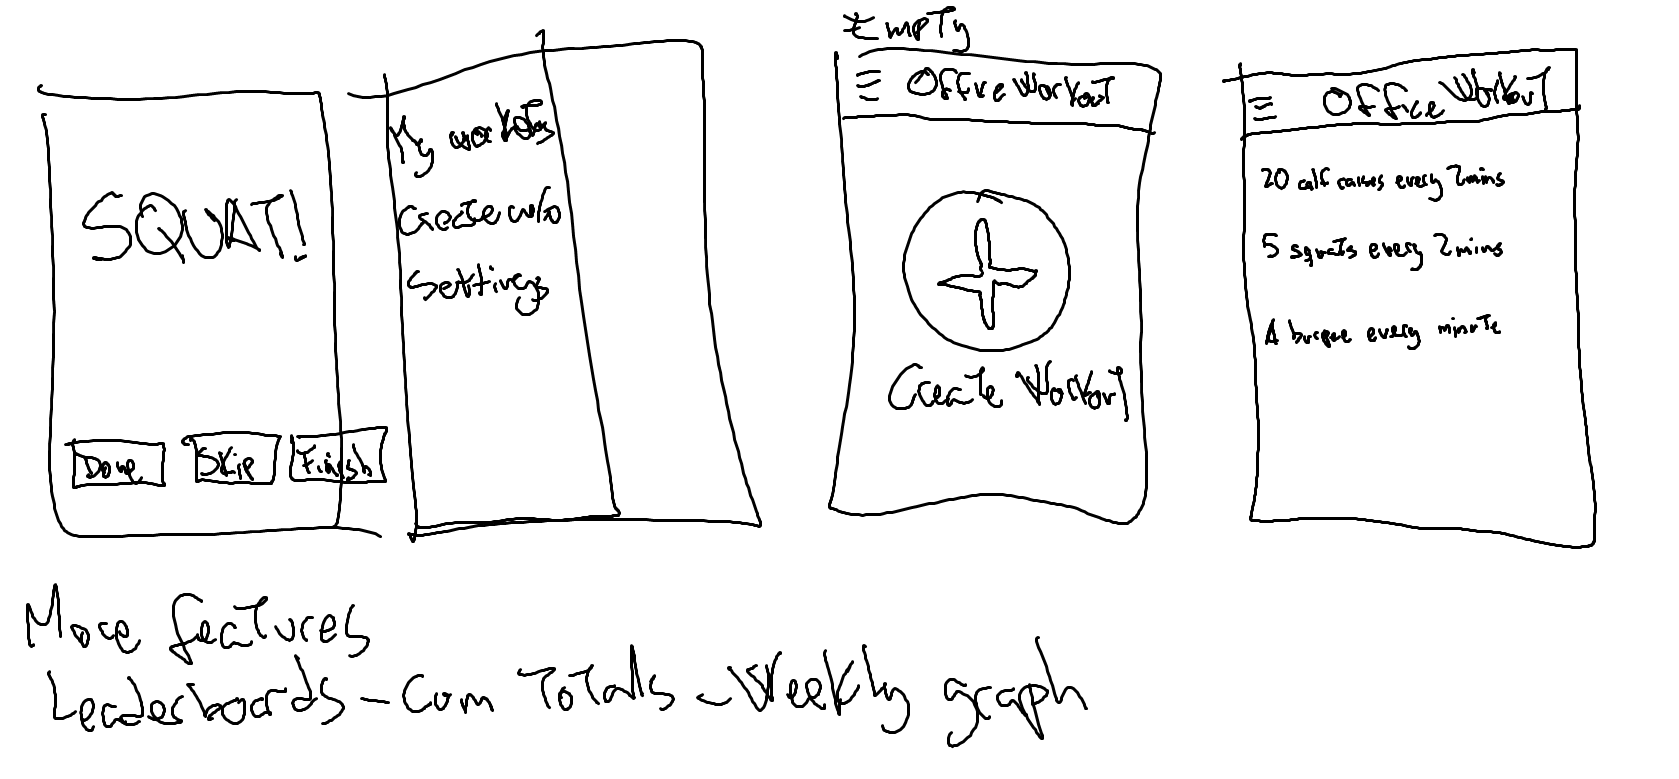 SQUAT!
Done
Skip
Finish
My workouts
Create w/o
Settings
Empty
Office Workout
Create Workout
Office Workout
20 calf raises every 2mins
5 squats every 2mins
A burpee every minute
More features
Leaderboards - Cum Totals - Weekly graph